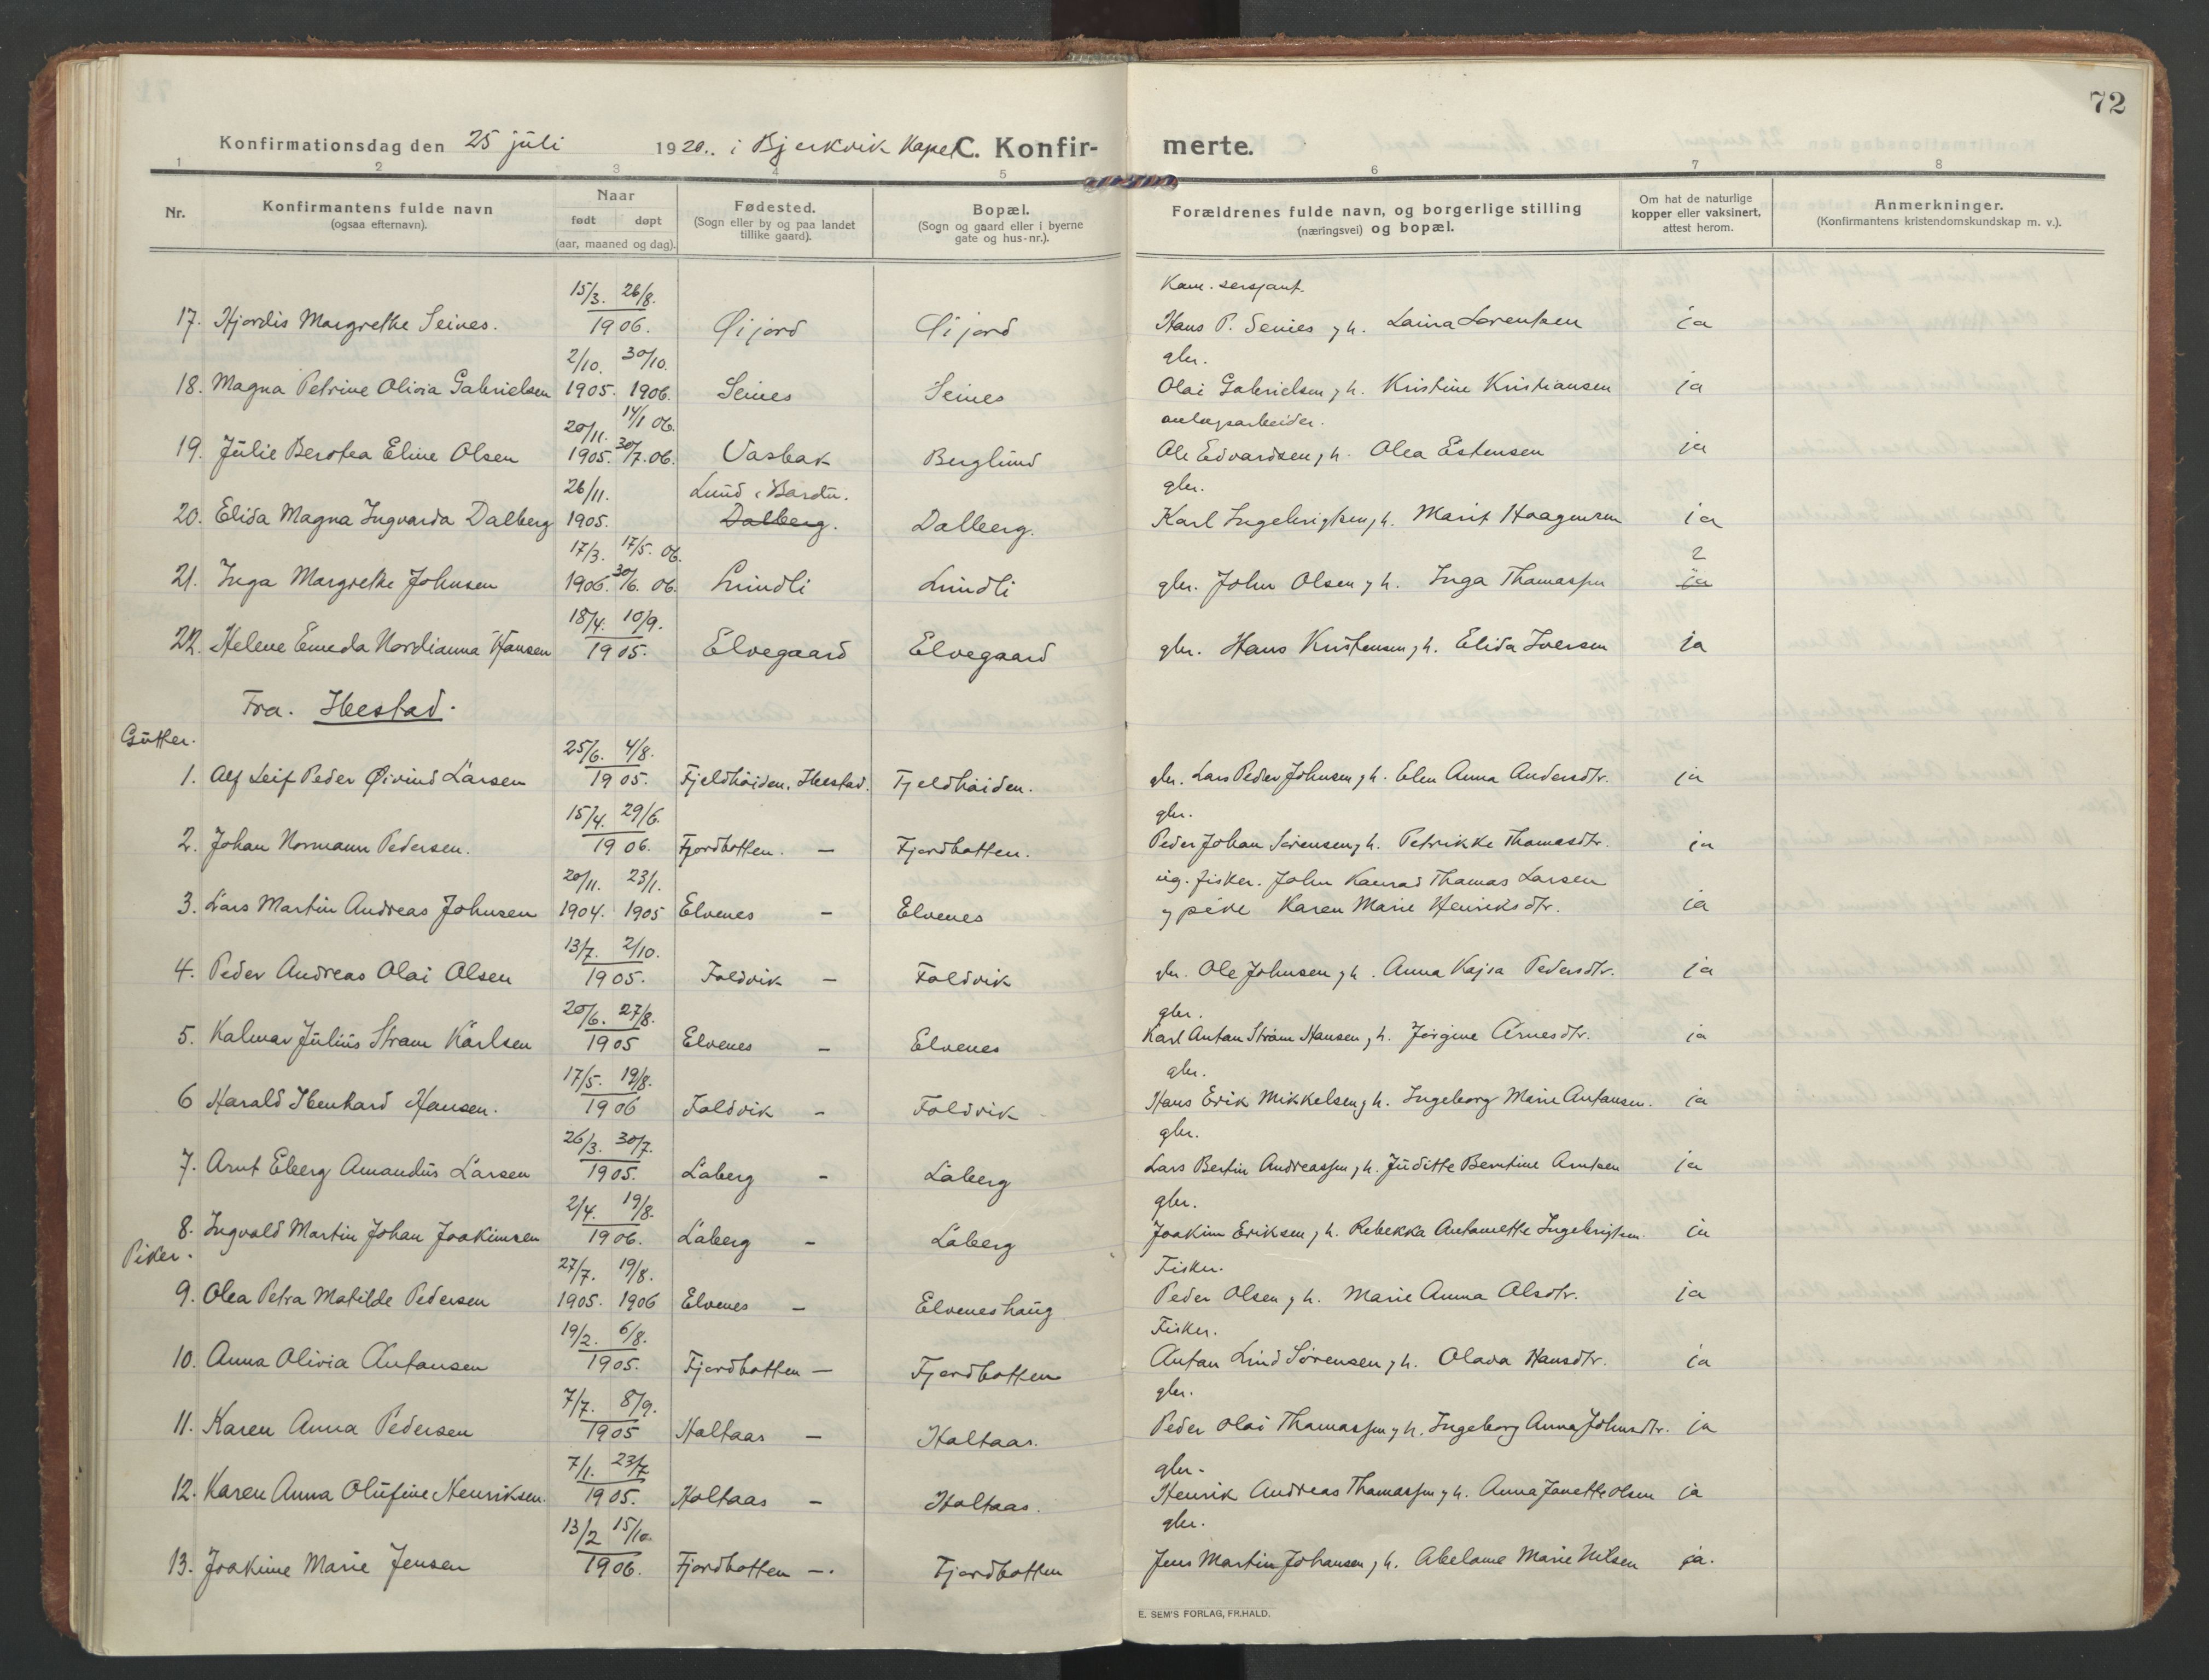 72
Konfirmationsdag den 25 juli 1920.. i Bjerkvik Kapel C. Konfir-merte.
1 2 3 4 5 6 7 8
Nr.
Konfirmantens fulde navn
(ogsaa efternavn).
Naar
født døpt
(aar, maaned og dag).
Fødested.
(Sogn eller by og paa landet
tillike gaard).
Bopæl.
(Sogn og gaard eller i byerne
gate og hus-nr.).
Forældrenes fulde navn, og borgerlige stilling
(næringsvei) og bopæl.
Om hat de naturlige
kopper eller vaksinert,
attest herom.
Anmerkninger.
(Konfirmantens kristendomskundskap m. v.).
15/3. 26/8. Kom. sersjant.
17. Hjordis Margrethe Seines. 1906. Øijord Øijord Hans P. Seines, h. Laina Lorentsen ja
2/10. 30/10. gbr.
18. Magna Petrine Olivia Gabrielsen 1905. 1906. Seines Seines Olai Gabrielsen, h. Kristine Kristiansen ja
20/11. 14/1 06. anlegsarbeider.
19. Julie Berotea Eline Olsen 1905. 30/7. 06. Vasbak Berglund Ole Edvardsen, h. Olea Estensen ja
26/11. Lund i Bardu. gbr.
20. Elida Magna Ingvarda Dalberg 1905. Dalberg. Dalberg. Karl Ingebrigtsen, h. Marit Haagensen ja
17/3. 17/5. 06. 2
21. Inga Margrethe Johnsen 1906. 30/6. 06. Lundli Lundli gbr. John Olsen, h. Inga Thomassen ja
18/4. 10/9.
22. Helene Emeda Nordianna Hansen 1905. Elvegaard Elvegaard gbr. Hans Kristensen, h. Elida Iversen ja
Fra. Ibestad.
Gutter.
25/6. 4/8.
1. Alf Leif Peder Øivind Larsen 1905. Fjeldhøiden. Ibestad. Fjeldhøiden. gbr. Lars Peder Johnsen, h. Elen Anna Andersdtr. ja
15/4. 29/6. gbr.
2. Johan Normann Pedersen. 1906. Fjordbotten. - Fjordbotten. Peder Johan Sørensen, h. Petrikke Thomasdtr. ja
20/11. 23/1. ug. fisker. John Konrad Thomas Larsen
3. Lars Martin Andreas Johnsen 1904. 1905 Elvenes - Elvenes og pike Karen Marie Henriksdtr. ja
13/7. 2/10.
4. Peder Andreas Olai Olsen 1905. Foldvik - Foldvik gbr. Ole Johnsen, h. Anna Kajsa Pedersdtr. ja
20/6. 27/8. gbr.
5. Kalmar Julius Strøm Karlsen 1905 Elvenes - Elvenes Karl Anton Strøm Hansen, h. Jørgine Arnesdtr. ja
17/5. 19/8. gbr.
6 Harald Ibenhard Hansen. 1906 Foldvik - Foldvik Hans Erik Mikkelsen, h. Ingeborg Marie Antonsen. ja
26/3. 30/7. gbr.
7. Arnt Eberg Amandus Larsen 1905. Laberg - Laberg Lars Bertin Andreassen, h. Juditte Berntine Arntsen ja
2/4. 19/8. gbr.
8. Ingvald Martin Johan Joakimsen 1906. Laberg - Laberg Joakim Eriksen, h. Rebekka Antonette Ingebrigtsen. ja
Piker.
27/7. 19/8. Fisker.
9. Olea Petra Matilde Pedersen 1905. 1906 Elvenes - Elveneshaug Peder Olsen, h. Marie Anna Olsdtr. ja
19/2. 6/8. Fisker.
10. Anna Olivia Antonsen 1905. Fjordbotten - Fjordbotten Anton Lind Sørensen, h. Olava Hansdtr. ja
7/7. 8/9. gbr.
11. Karen Anna Pedersen 1905 Holtaas - Holtaas. Peder Olai Thomassen, h. Ingeborg Anna Johnsdtr. ja
7/1. 23/7 gbr.
12. Karen Anna Olufine Henriksen. 1905. Holtaas - Holtaas. Henrik Andreas Thomassen, h. Anna Janette Olsen ja
13/2 15/10. gbr.
13. Joakime Marie Jensen 1906. Fjordbotten -. Fjordbotten Jens Martin Johansen, h. Abelone Marie Nilsen ja.
E. SEM'S FORLAG, FR.HALD.